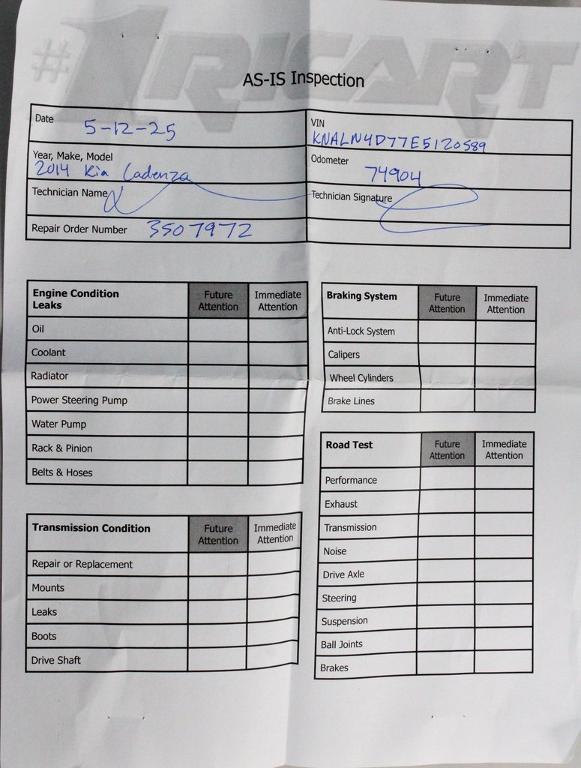 #1RICART
AS-IS Inspection
Date 5-12-25
VIN KNALN4D77E5120589
Year, Make, Model 2014 Kia Cadenza
Odometer 74904
Technician Name
Technician Signature
Repair Order Number 3507972
Engine Condition Leaks Future Attention Immediate Attention
Oil
Coolant
Radiator
Power Steering Pump
Water Pump
Rack & Pinion
Belts & Hoses
Transmission Condition Future Attention Immediate Attention
Repair or Replacement
Mounts
Leaks
Boots
Drive Shaft
Braking System Future Attention Immediate Attention
Anti-Lock System
Calipers
Wheel Cylinders
Brake Lines
Road Test Future Attention Immediate Attention
Performance
Exhaust
Transmission
Noise
Drive Axle
Steering
Suspension
Ball Joints
Brakes